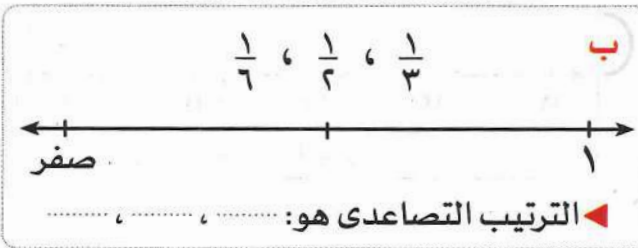 ب
١/٣ ، ١/٢ ، ١/٦
صفر ١
◀ الترتيب التصاعدى هو: ............ ، ............ ، ............